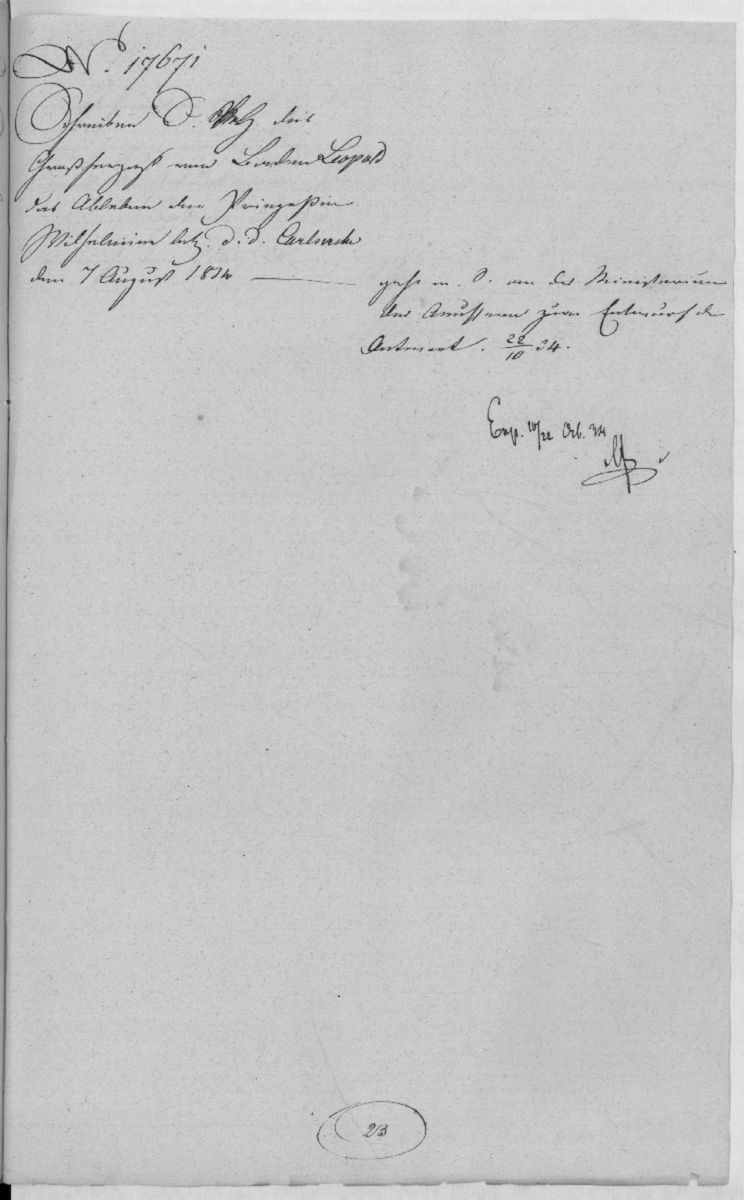 No. 17671
Schreiben S. des
Großherzogs von Baden Leopold
das Ableben der Prinzessin
Wilhelmine betr. d. d. Carlsruhe
den 7 August 1834 —
geht m. S. an das Ministerium
des Aeussern zum Entwurf der
Antwort. 22/10 34.
Exp. 10/22 Oct. 34
23